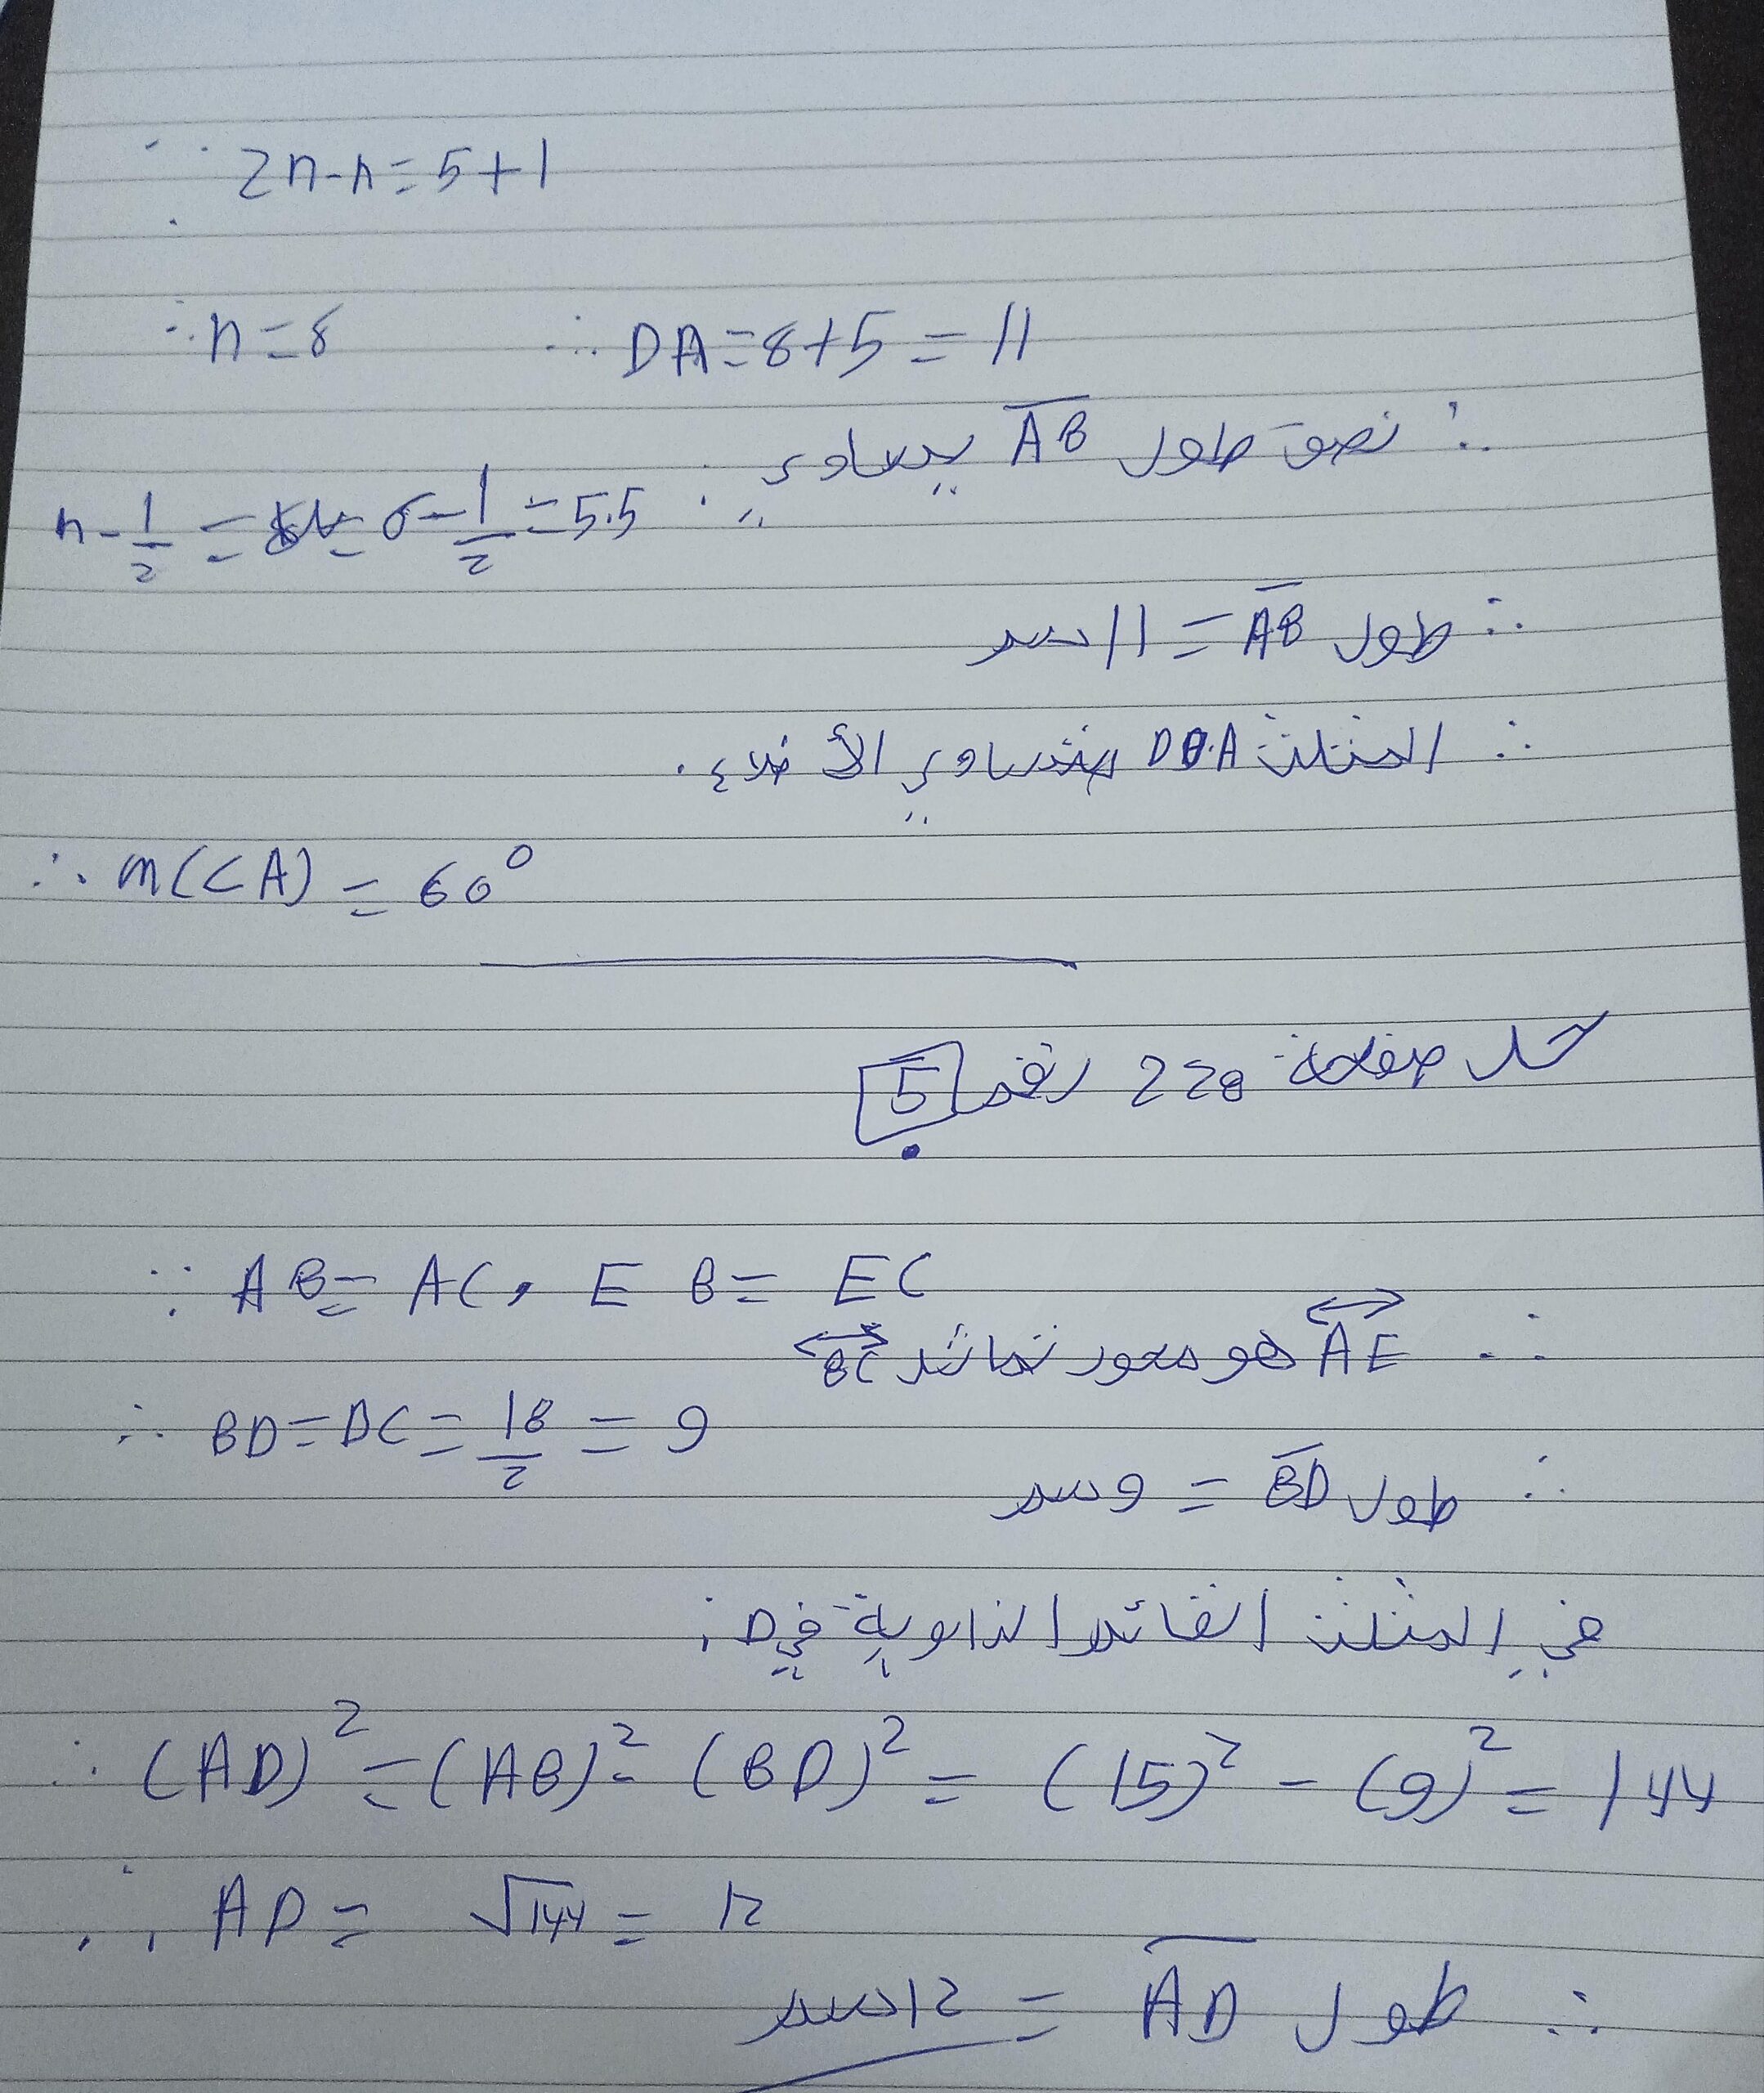 ∵ 2n-n=5+1
∴ n=8 ∴ DA=8+5=11
∵ نصف طول AB يساوي:
n-1/2 = 6-1/2=5.5
∴ طول AB = 11 سم
∴ المثلث DBA متساوي الأضلاع.
∴ m(<A) = 60°
حل صفحة 228 رقم 5
∵ AB= AC, EB= EC
∴ AE هو محور تماثل BC
∴ BD=DC= 18/2 = 9
∴ طول BD = 9 سم
في المثلث القائم الزاوية في D:
∴ (AD)² = (AB)² - (BD)² = (15)² - (9)² = 144
∴ AD = √144 = 12
∴ طول AD = 12 سم